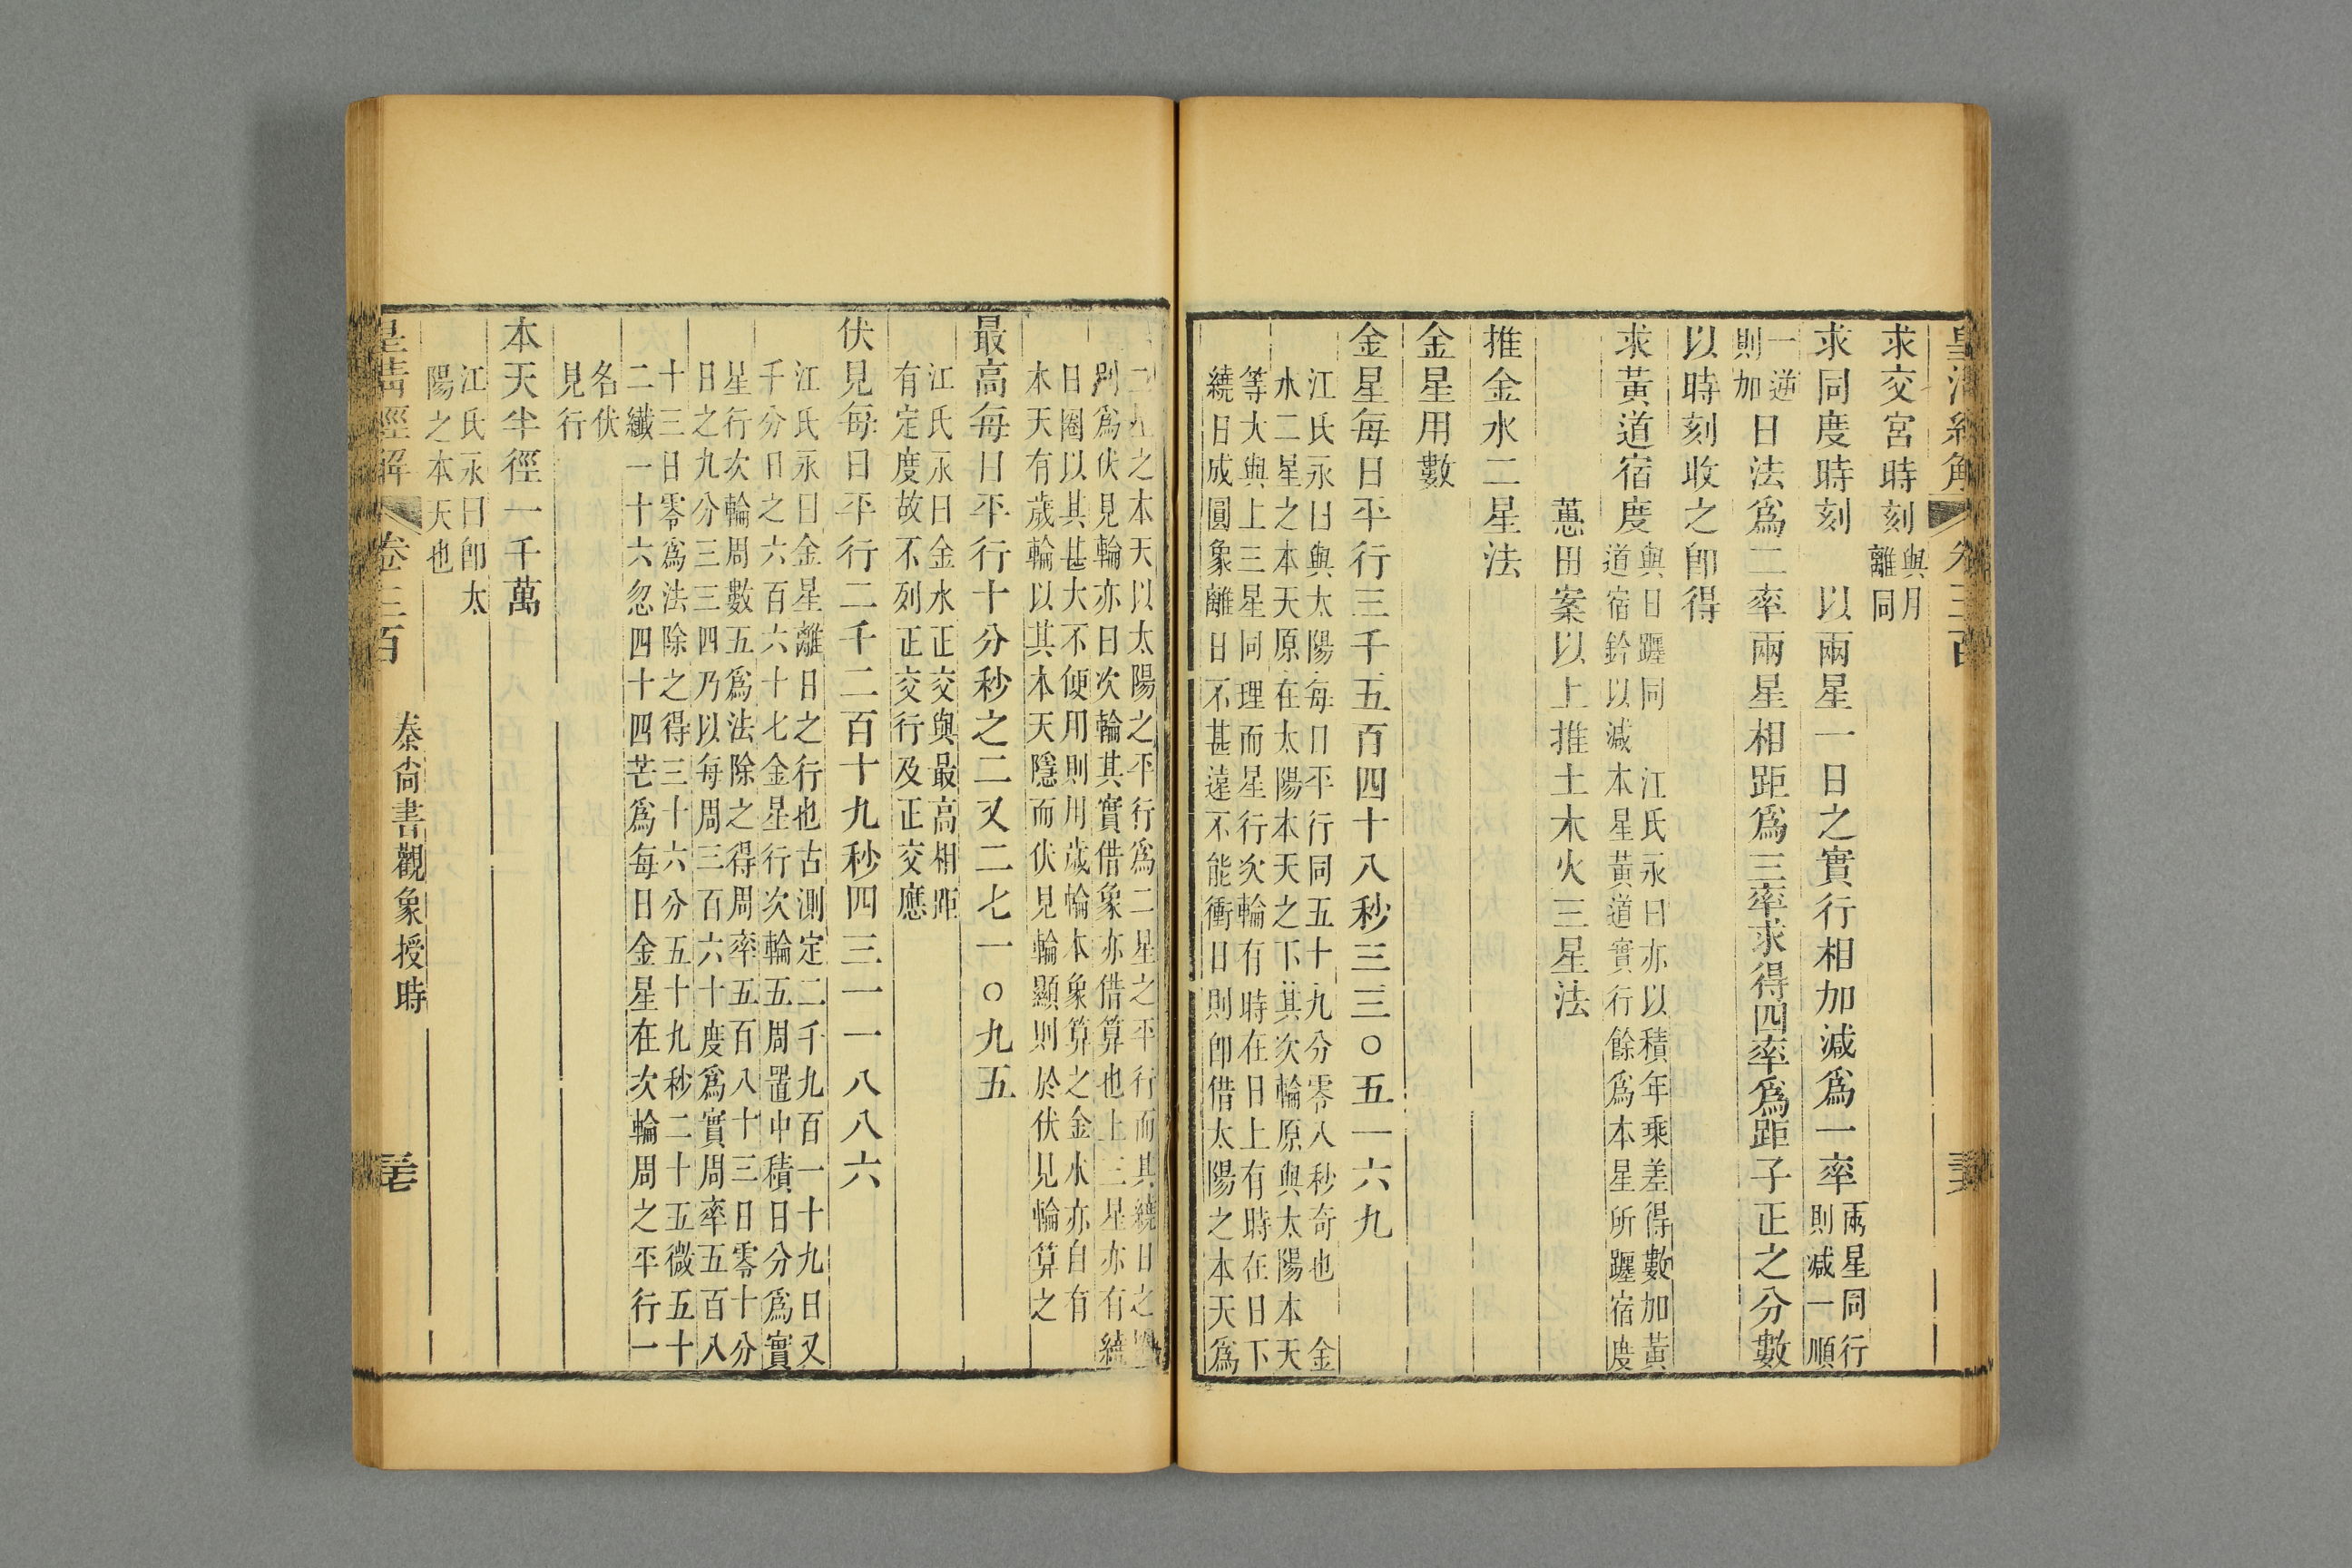 求交宮時刻與月
離同
求同度時刻 以兩星一日之實行相加減爲一率兩星同行
則減一順
一逆
則加日法爲二率兩星相距爲三率求得四率爲距子正之分數
以時刻收之卽得
求黃道宿度與日躔同 江氏永曰亦以積年乘差得數加黃
道宿鈐以減本星黃道實行餘爲本星所躔宿度
蕙田案以上推土木火三星法
推金水二星法
金星用數
金星每日平行三千五百四十八秒三三○五一六九
江氏永曰與太陽每日平行同五十九分零八秒奇也 金
水二星之本天原在太陽本天之下其次輪原與太陽本天
等大與上三星同理而星行次輪有時在日上有時在日下
繞日成圓象離日不甚遠不能衝日則卽借太陽之本天爲
二星之本天以太陽之平行爲二星之平行而其繞日之
別爲伏見輪亦曰次輪其實借象亦借算也上三星亦有繞
日圈以其甚大不便用則用歲輪本象算之金水亦自有
本天有歲輪以其本天隱而伏見輪顯則於伏見輪算之
最高每日平行十分秒之二又二七一○九五
江氏永曰金水正交與最高相距
有定度故不列正交行及正交應
伏見每日平行二千二百十九秒四三一一八八六
江氏永曰金星離日之行也古測定二千九百一十九日又
千分日之六百六十七金星行次輪五周置中積日分爲實
星行次輪周數五爲法除之得周率五百八十三日零十分
日之九分三三四乃以每周三百六十度爲實周率五百八
十三日零爲法除之得三十六分五十九秒二十五微五十
二纖一十六忽四十四芒爲每日金星在次輪周之平行一
名伏
見行
本天半徑一千萬
江氏永曰卽太
陽之本天也
皇清經解 卷三百 秦尙書觀象授時